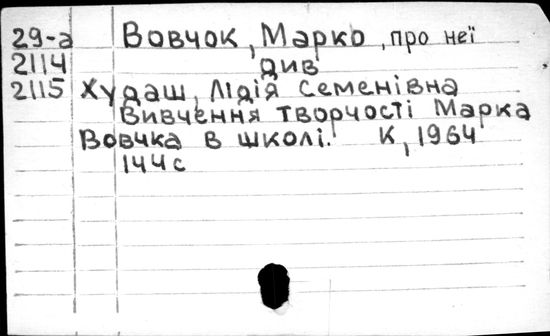 29-а Вовчок, Марко, про неї
2114 див
2115 Худаш, Лідія Семенівна
Вивчення творчості Марка
Вовчка в школі. К, 1964
144с